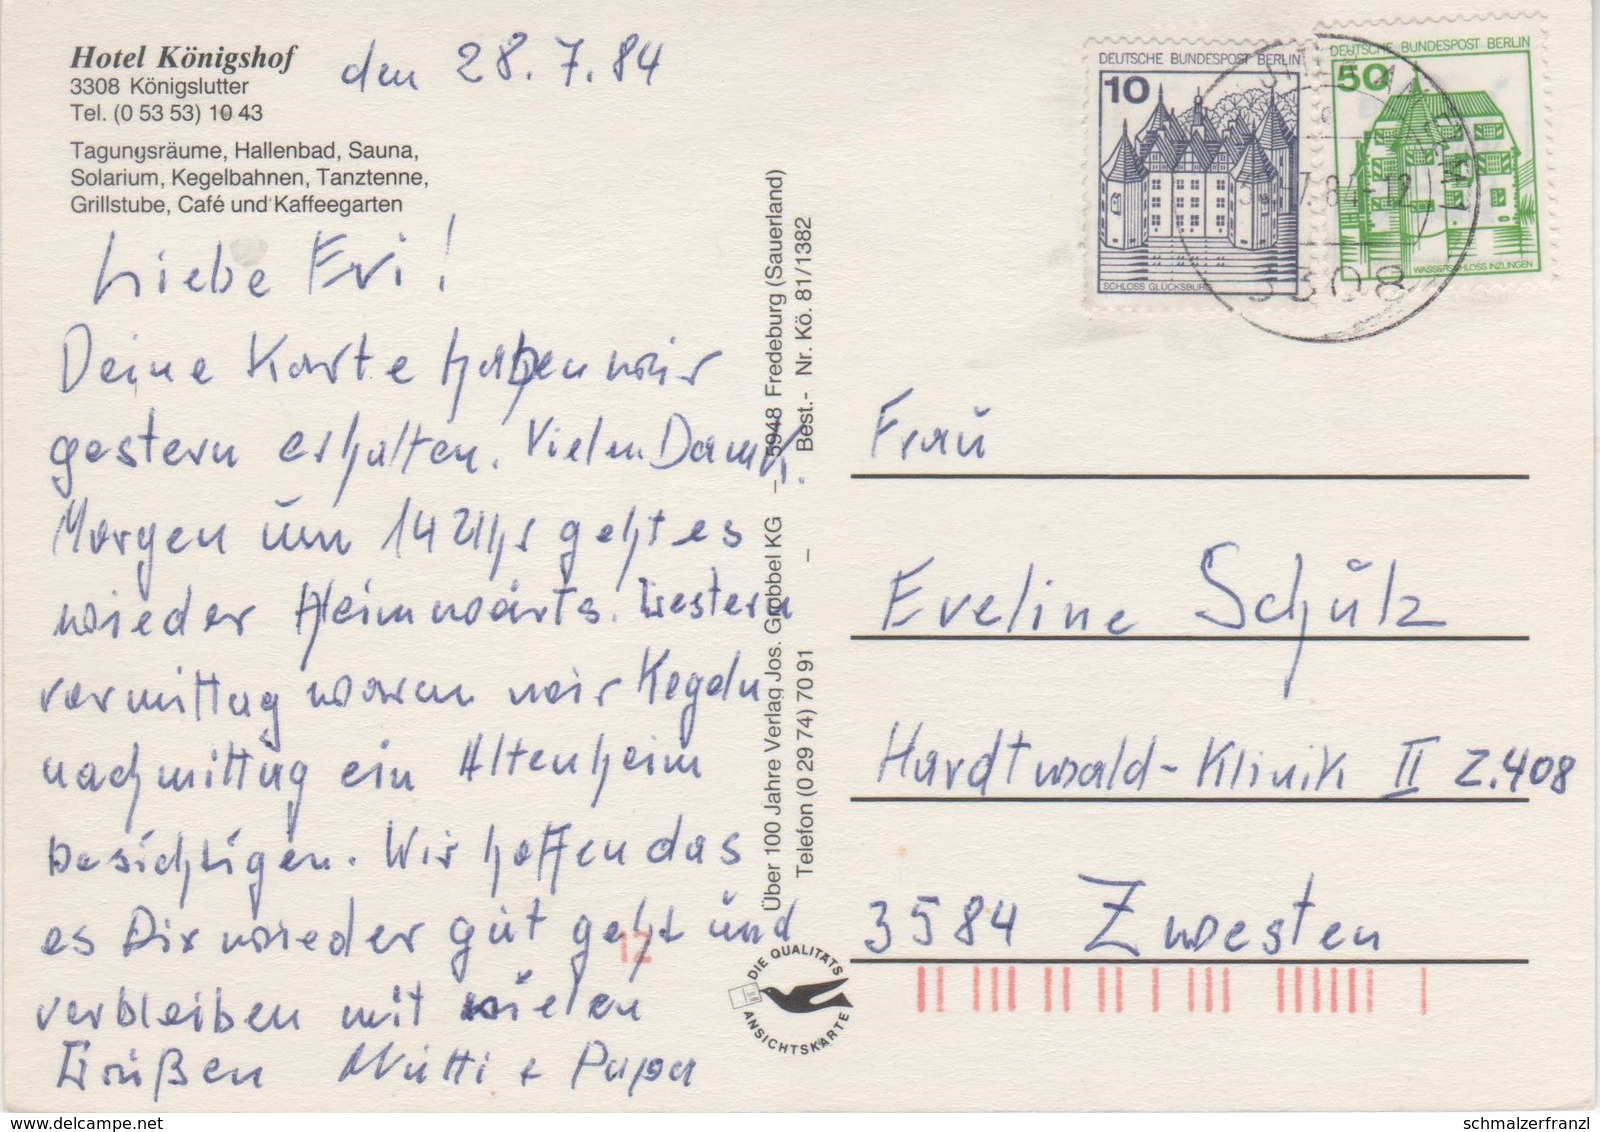 Hotel Königshof
3308 Königslutter
Tel. (0 53 53) 10 43
Tagungsräume, Hallenbad, Sauna,
Solarium, Kegelbahnen, Tanztenne,
Grillstube, Café und Kaffeegarten
den 28.7.84
Liebe Evi!
Deine Karte haben wir
gestern erhalten. Vielen Dank.
Morgen um 14 Uhr geht es
wieder Heimwärts. Gestern
vormittag waren wir Kegeln
nachmittag ein Altenheim
besichtigen. Wir hoffen das
es Dir wieder gut geht und
verbleiben mit vielen
Grüßen Mutti + Papa
Über 100 Jahre Verlag Jos. Grobbel KG – 5948 Fredeburg (Sauerland)
Telefon (0 29 74) 70 91 – Best.- Nr. Kö. 81/1382
DIE QUALITÄTS
ANSICHTSKARTE
12
DEUTSCHE BUNDESPOST BERLIN
10
SCHLOSS GLÜCKSBURG
DEUTSCHE BUNDESPOST BERLIN
50
WASSERSCHLOSS INZLINGEN
7.84-12
3308
Frau
Eveline Schülz
Hardtwald-Klinik II Z.408
3584 Zwesten
schmalzerfranzl